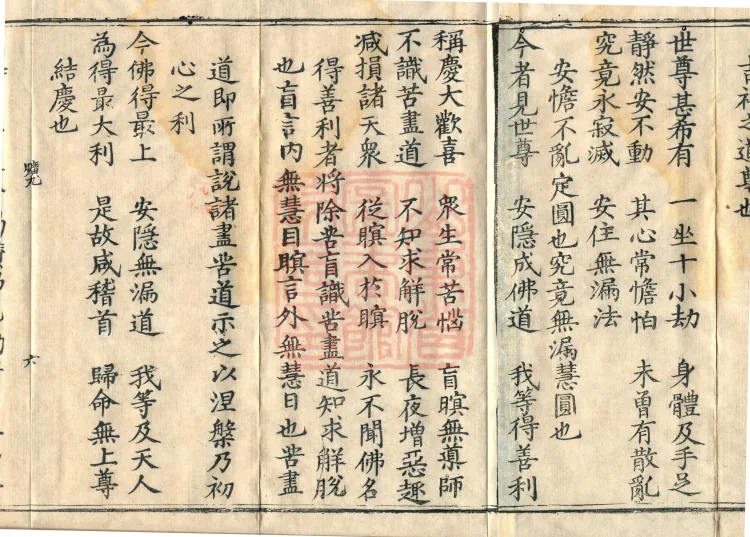 吉祥之道尊也
世尊甚希有 一坐十小劫 身體及手足
靜然安不動 其心常憺怕 未曾有散亂
究竟永寂滅 安住無漏法
安憺不亂定圓也究竟無漏慧圓也
今者見世尊 安隱成佛道 我等得善利
稱慶大歡喜 眾生常苦惱 盲瞑無導師
不識苦盡道 不知求解脫 長夜增惡趣
減損諸天眾 從瞑入於瞑 永不聞佛名
得善利者將除苦盲識苦盡道知求解脫
也盲言內無慧目瞑言外無慧日也苦盡
道即所謂說諸盡苦道示之以涅槃乃初
心之利
今佛得最上 安隱無漏道 我等及天人
為得最大利 是故咸稽首 歸命無上尊
結慶也
曠九 六